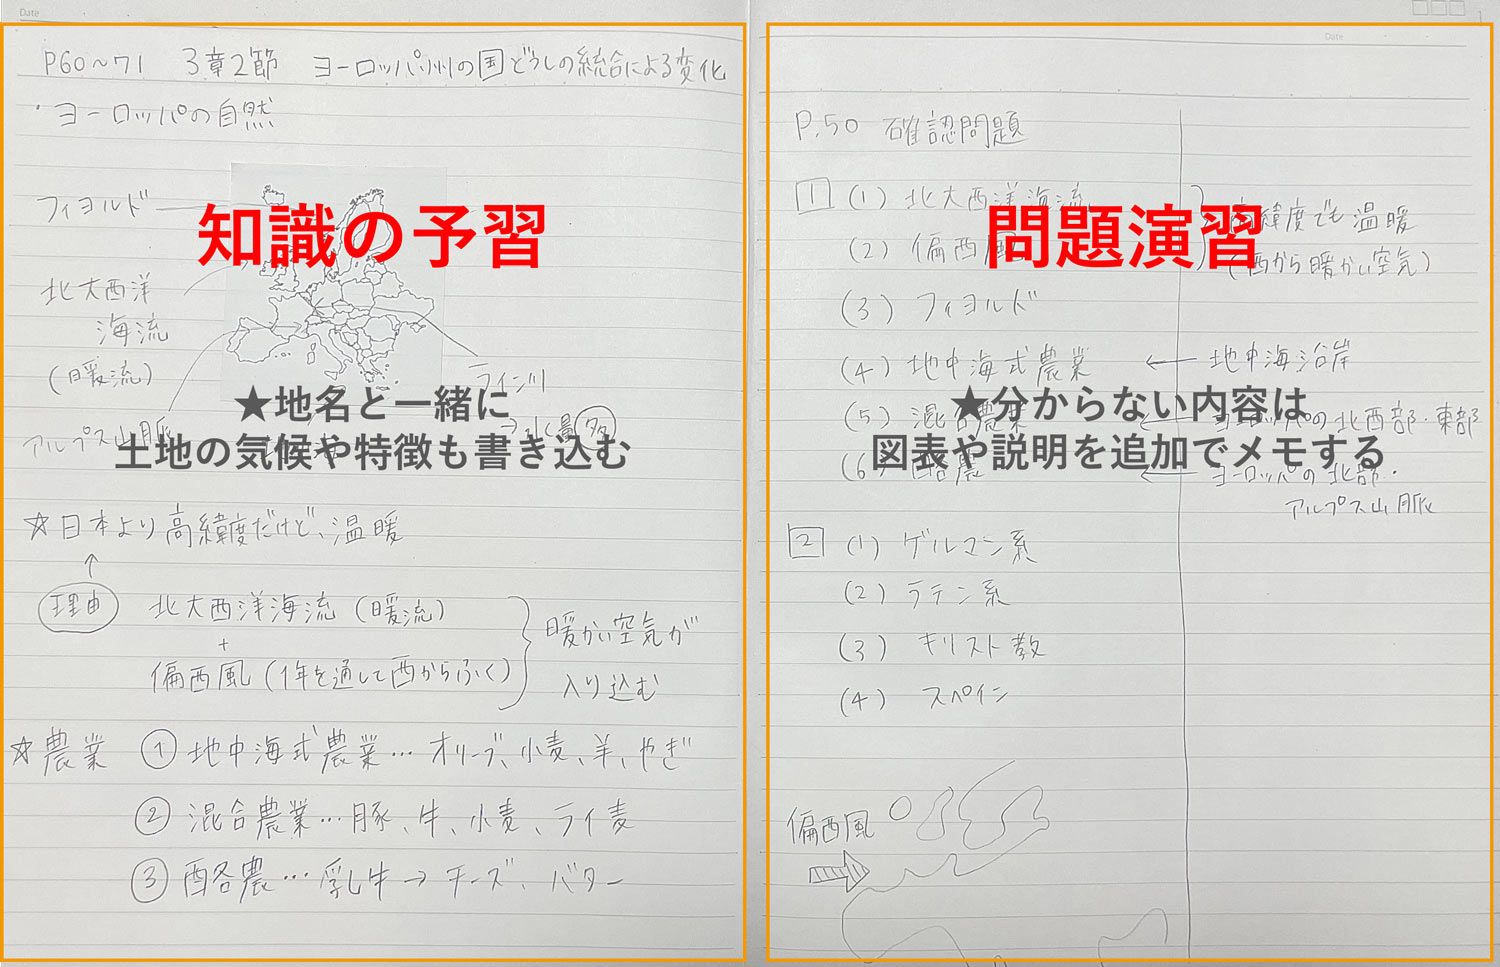 Date
P60~71 3章2節 ヨーロッパ州の国どうしの統合による変化
・ヨーロッパの自然
知識の予習
フィヨルド
北大西洋
海流
(暖流)
ライン川
★地名と一緒に
→水量多
アルプス山脈
土地の気候や特徴も書き込む
☆日本より高緯度だけど、温暖
↑
理由 北大西洋海流(暖流)
+
偏西風(1年を通して西からふく)
暖かい空気が
入り込む
☆農業 ①地中海式農業…オリーブ、小麦、羊、やぎ
②混合農業…豚、牛、小麦、ライ麦
③酪農…乳し牛→チーズ、バター
Date
P.50 確認問題
1 (1) 北大西洋海流
問題演習
高緯度でも温暖
(2) 偏西風
(西から暖かい空気)
(3) フィヨルド
(4) 地中海式農業 ← 地中海沿岸
★分からない内容は
(5) 混合農業 ← ヨーロッパの北西部・東部
図表や説明を追加でメモする
(6) 酪農 ← ヨーロッパの北部・
アルプス山脈
2 (1) ゲルマン系
(2) ラテン系
(3) キリスト教
(4) スペイン
偏西風